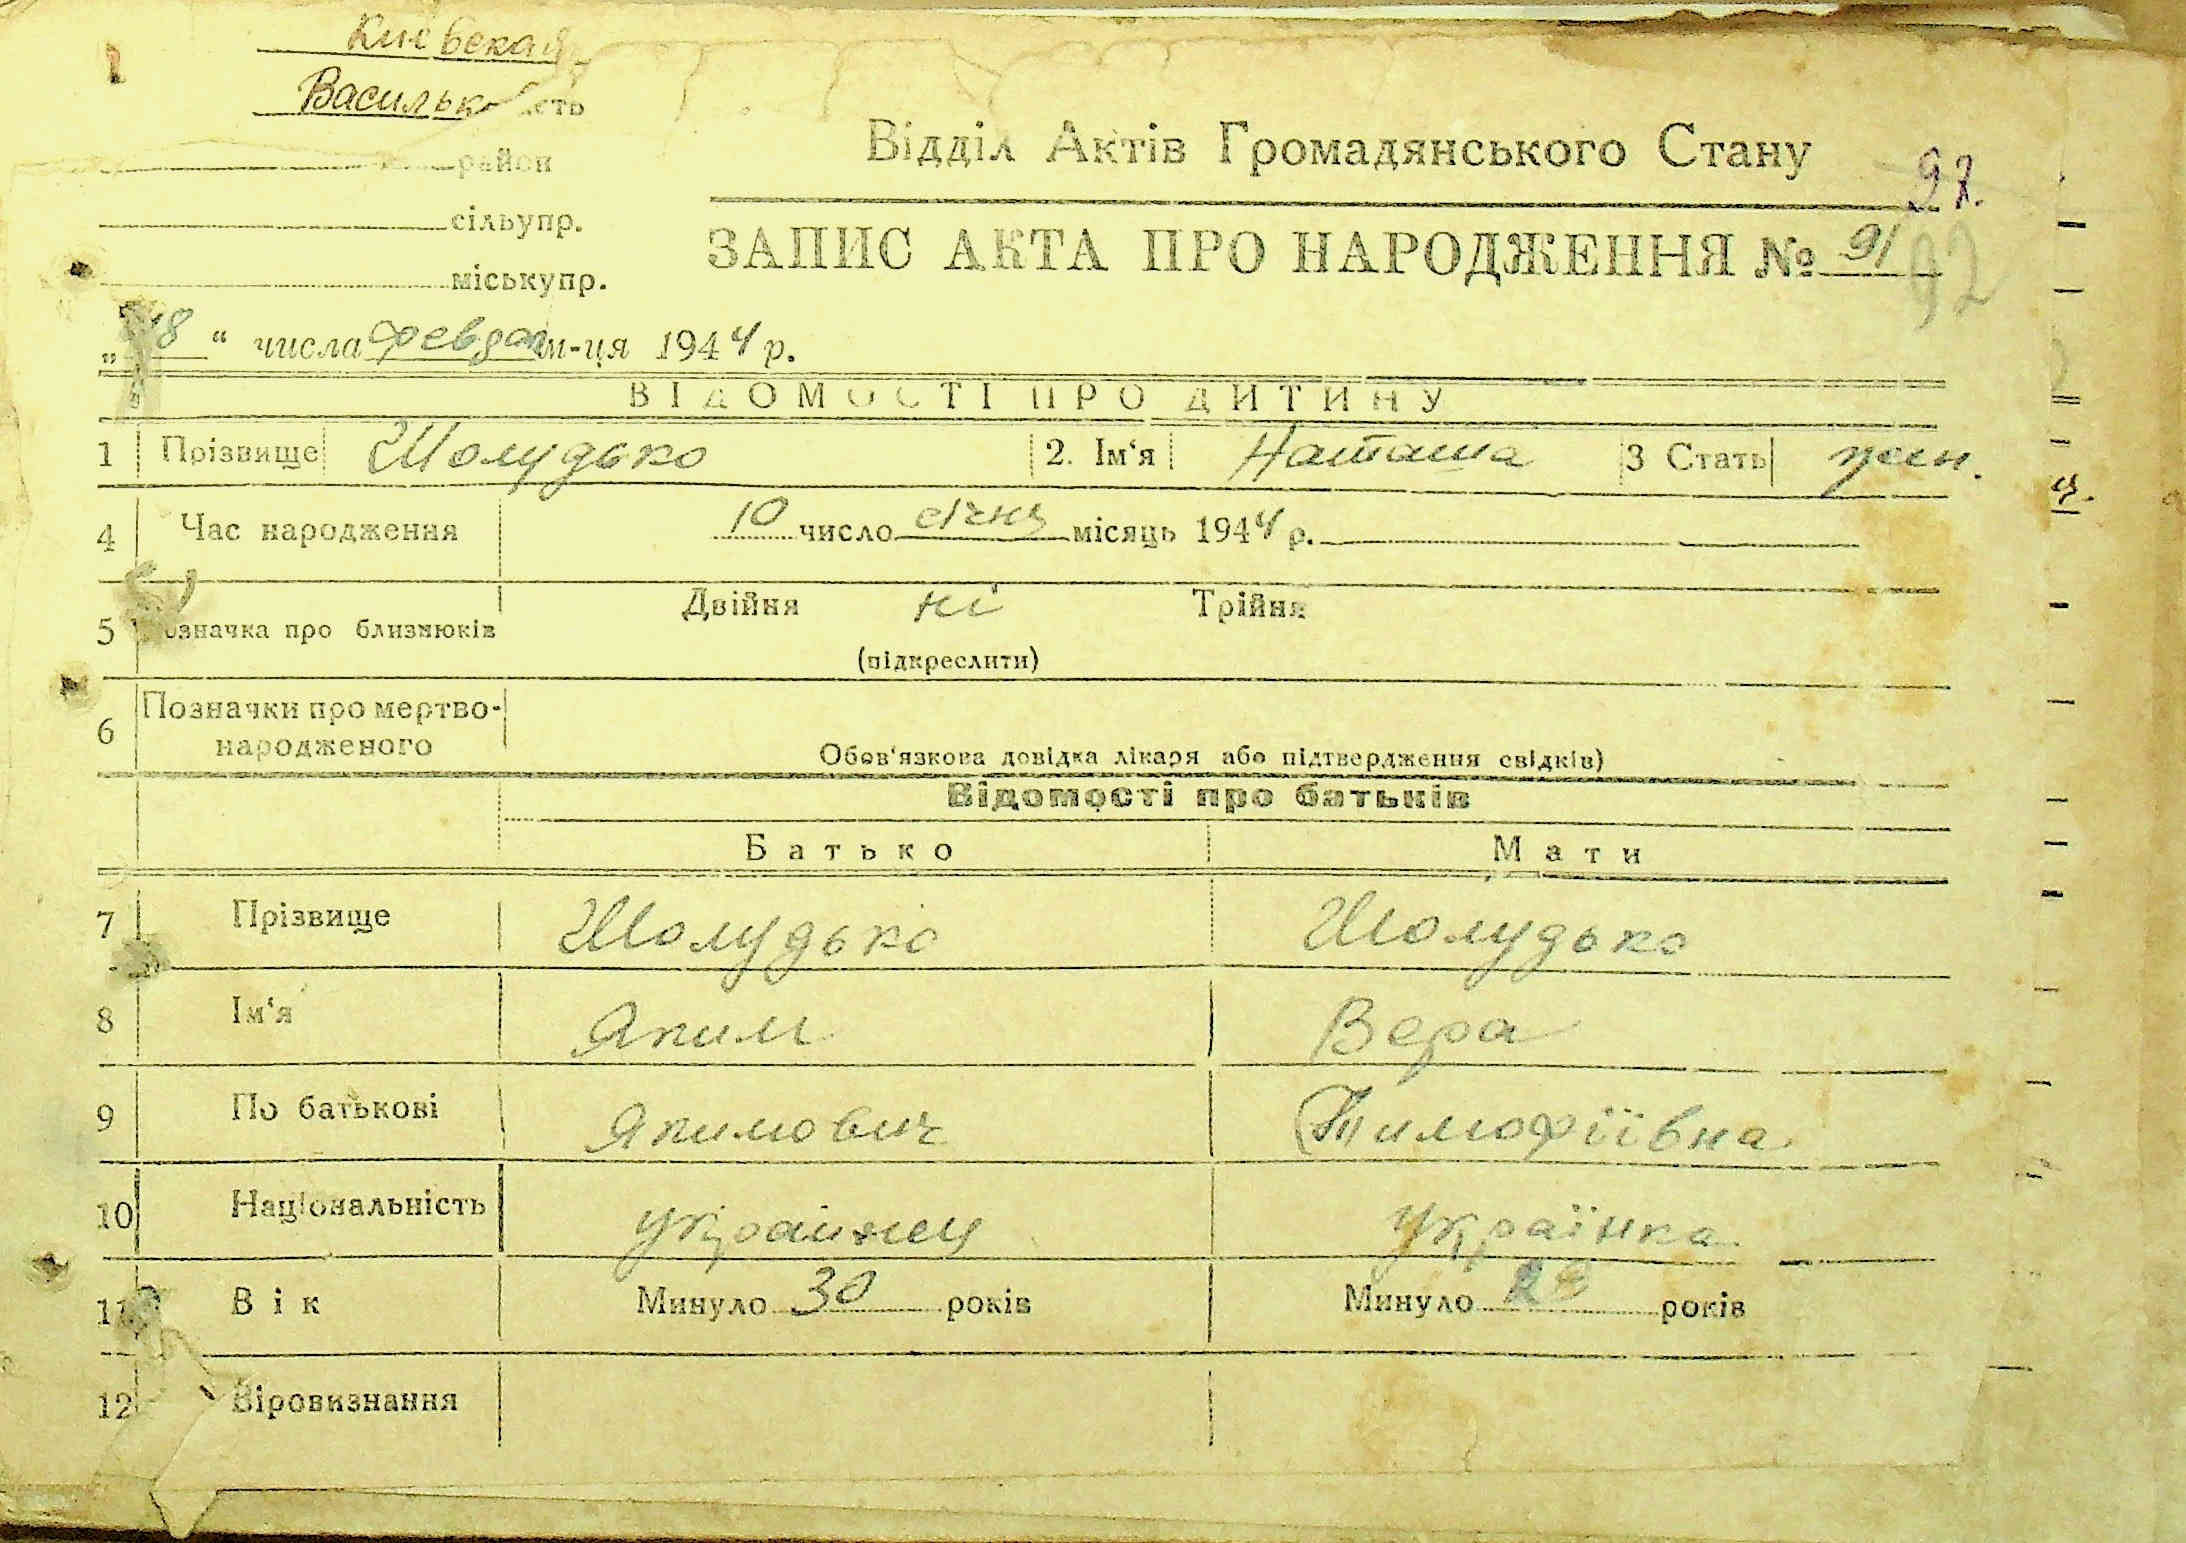 Киевская
Васильк сть
район
сільупр.
міськупр.
Відділ Актів Громадянського Стану
91.
ЗАПИС АКТА ПРО НАРОДЖЕННЯ № 91
92
„18“ числа феврал м-ця 1944 р.
ВІДОМОСТІ ПРО ДИТИНУ
1 Прізвище Шолудько 2. Ім‘я Наташа 3 Стать жін.
4 Час народження 10 число січня місяць 1944 р.
Двійня ні Трійня
5 означка про близнюків
(підкреслити)
6 Позначки про мертво-
народженого
Обов‘язкова довідка лікаря або підтвердження свідків)
Відомості про батьків
Батько Мати
7 Прізвище Шолудько Шолудько
8 Ім‘я Яким Вера
9 По батькові Якимович Тимофіївна
10 Національність українец українка
11 Вік Минуло 30 років Минуло років
12 Віровизнання